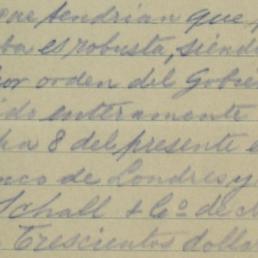 tendrian que
es robusta, siend
por orden del Gobie
ido enteramente
ha 8 del presente
nco de Londres y
Schall + Co de
Trescientos dolla